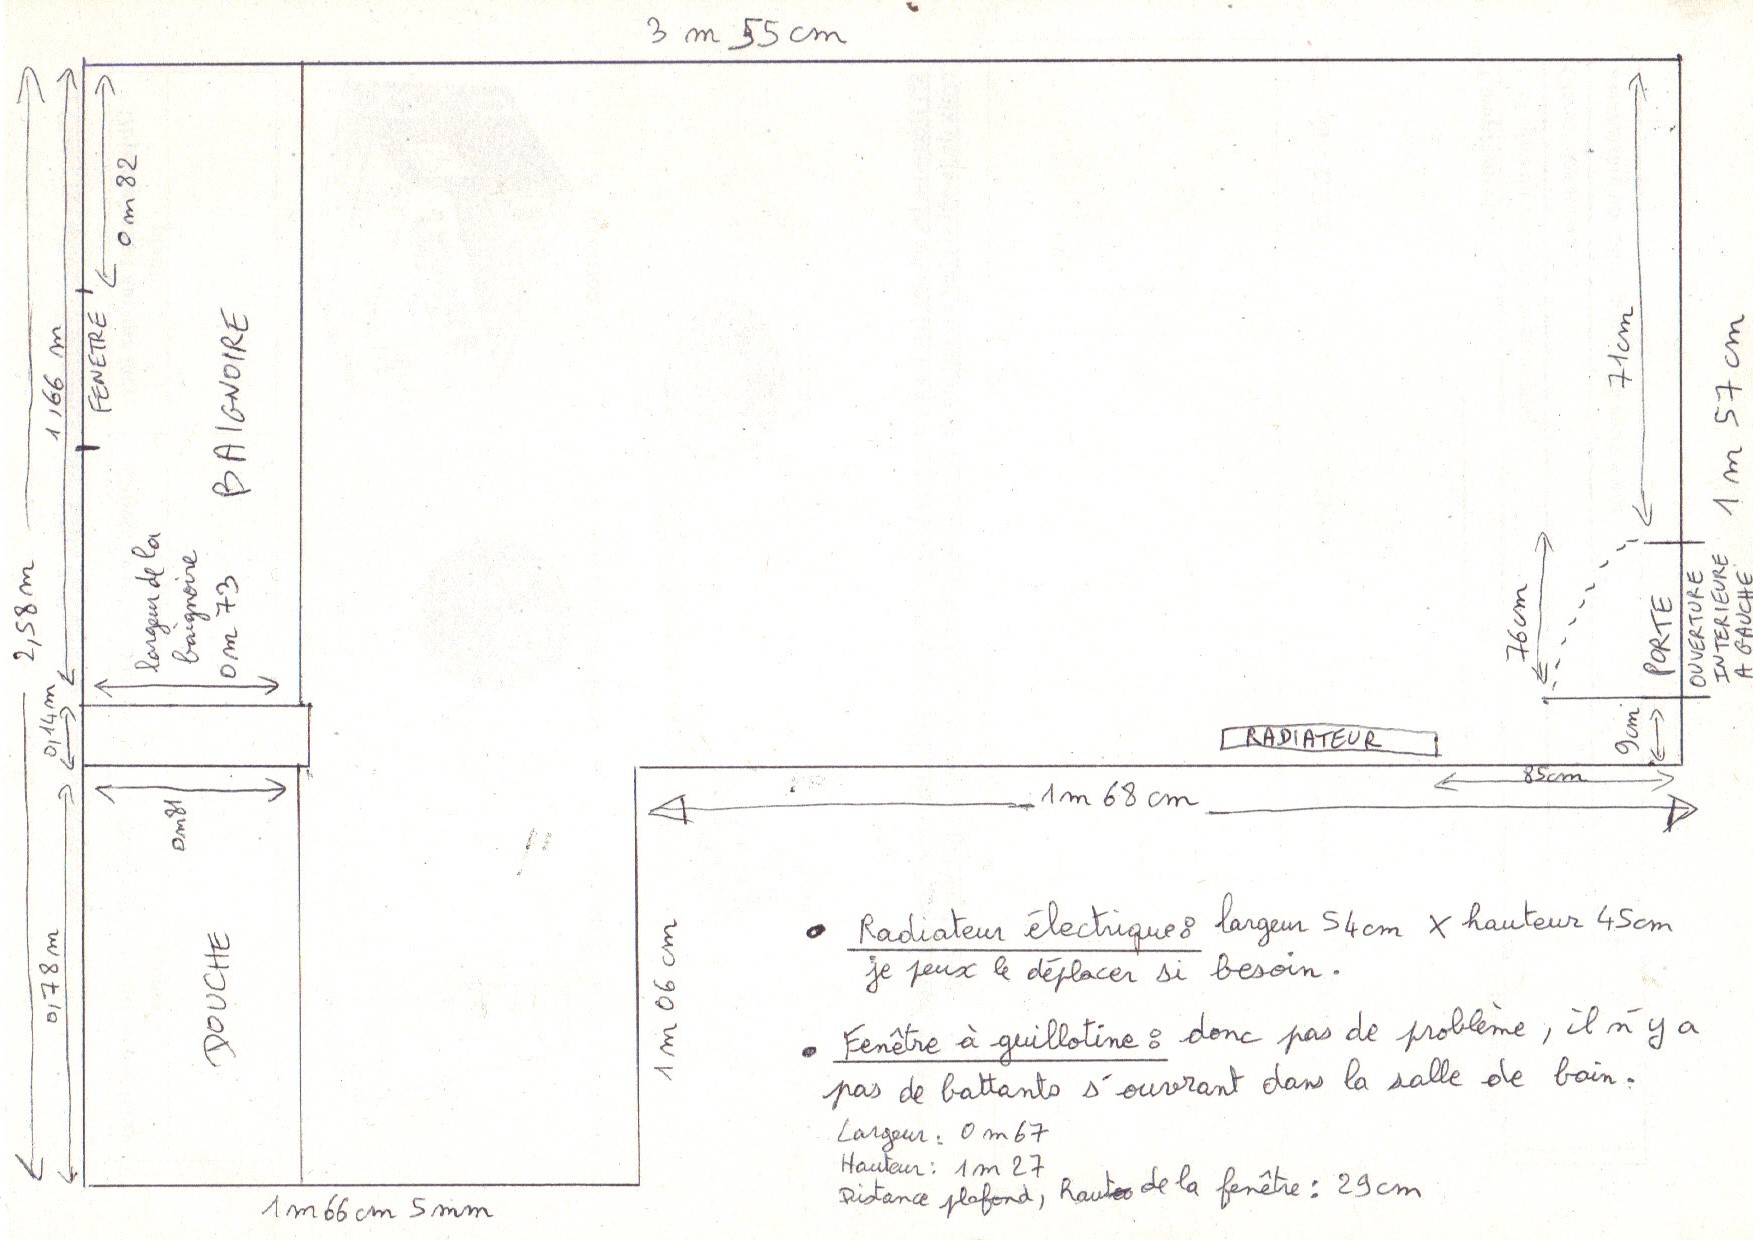 3 m 55 cm
2,58 m
1,66 m
0,14 m
0,78 m
0 m 82
FENETRE
BAIGNOIRE
largeur de la
baignoire
0 m 73
0m81
DOUCHE
1m 66 cm 5 mm
1 m 06 cm
71cm
1 m 57 cm
76cm
PORTE
OUVERTURE
INTERIEURE
A GAUCHE
9cm
RADIATEUR
85cm
1m 68 cm
• Radiateur électrique : largeur 54 cm X hauteur 45cm
je peux le déplacer si besoin.
• Fenêtre à guillotine : donc pas de problème, il n'y a
pas de battants s'ouvrant dans la salle de bain.
Largeur : 0 m 67
Hauteur : 1m 27
Distance plafond, haut de la fenêtre : 29 cm